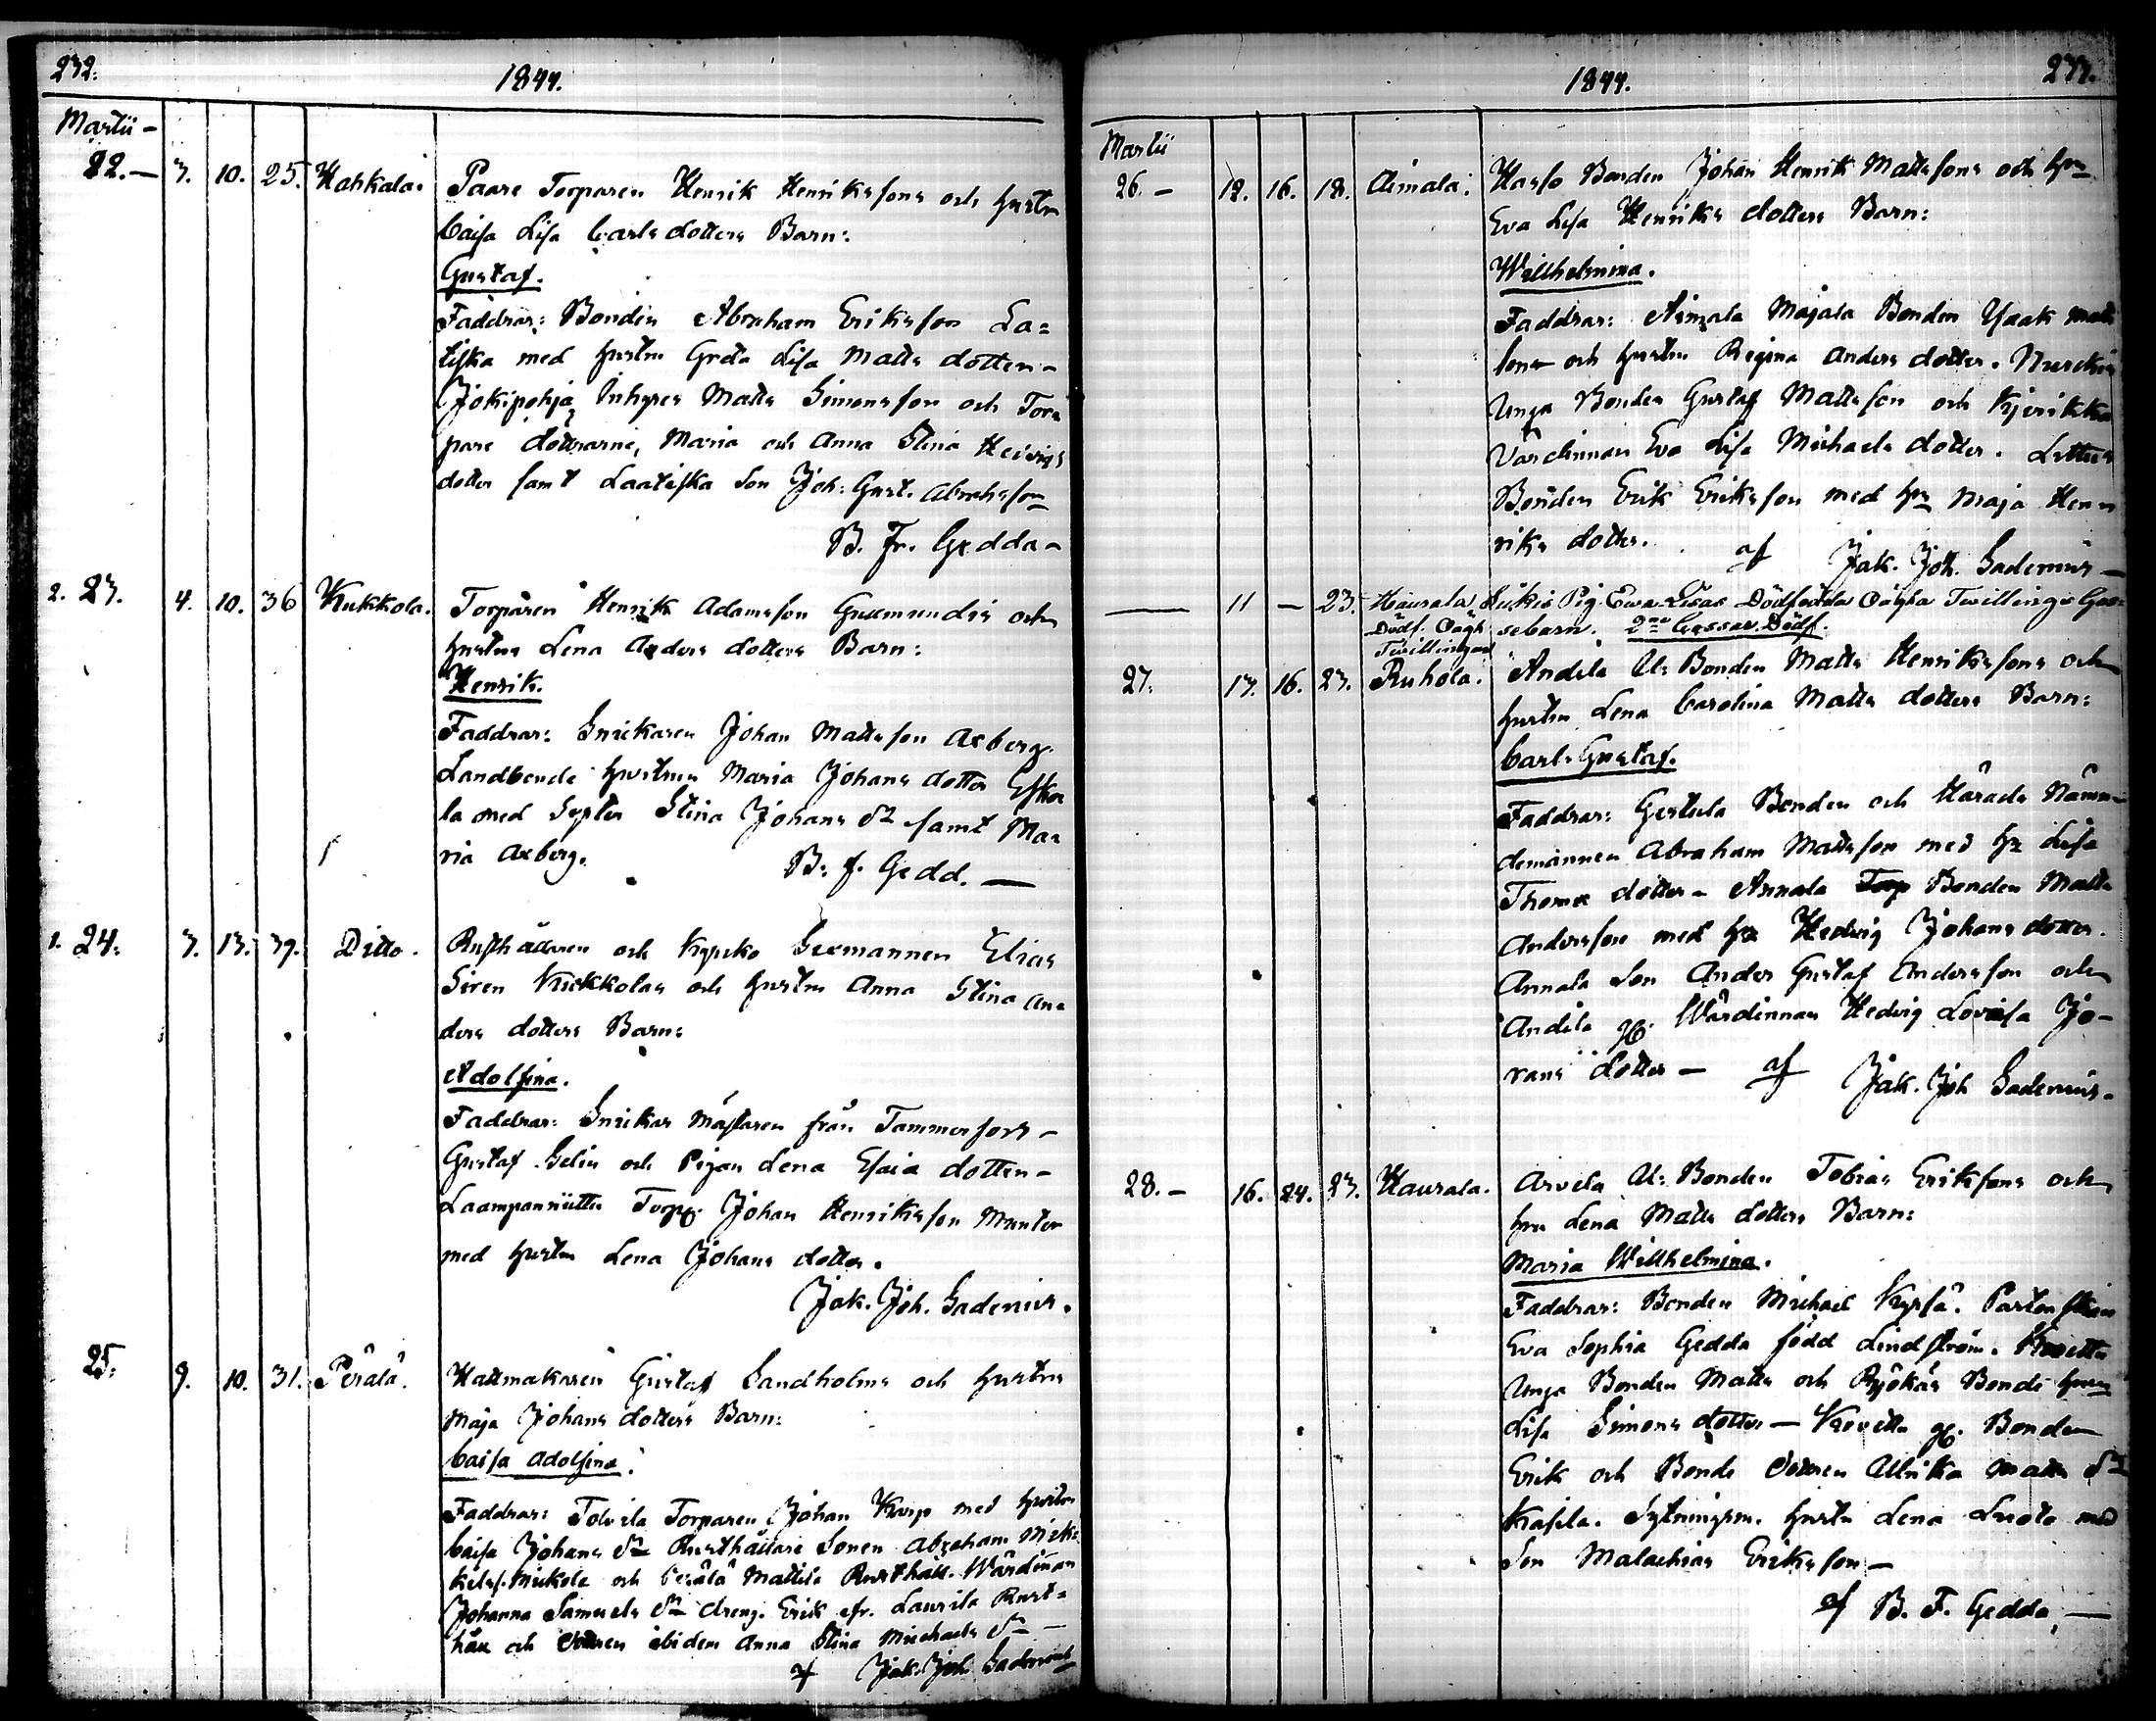 232.
1844.
Martii -
22. - 3. 10. 25. Hahkala. Paare Torparen Henrik Henrikssons och hustru
Caisa Lisa Carls dotters Barn:
Gustaf.
Faddrar: Bonden Abraham Eriksson La=
tiska med hustru Greta Lisa Matts dotter -
Jokipohja Inhyses Matts Simonsson och Tor=
pare döttrarne, Maria och Anna Stina Hedvigs
dotter samt Laatiska Son Joh: Gust. Abrahsson
B. Fr. Gedda -
2. 23. 4. 10. 36 Kukkola. Torparen Henrik Adamsson Gummundis och
hustrus Lena Anders dotters Barn:
Henrik.
Faddrar: Snickaren Johan Mattsson Axberg.
Landbonde hustrun Maria Johans dotter Esko
la med Syster Stina Johans dr samt Ma=
ria Axberg.
B: f. Gedd. -
1. 24: 3. 13. 39. Ditto. Rusthållaren och Kyrcko Sexmannen Elias
Siren Kuckkolas och hustrus Anna Stina An=
ders dotters Barn:
Adolfina.
Faddrar: Snickar Mästaren från Tammerfors -
Gustaf Selin och Pigan Lena Esaia dotter -
Laampaniittu Torp. Johan Henriksson Munter
med hustru Lena Johans dotter.
Jak. Joh. Sadenius.
25. 9. 10. 31. Perälä. Hattmakaren Gustaf Sandholms och hustrus
Maja Johans dotters Barn:
Caisa Adolfina.
Faddrar: Tolvila Torparen Johan Karp med hustru
Caisa Johans dr Rusthållare Sonen Abraham Mick=
kels. Mickola och Perälä Mattila Rusthåll. Wärdinnan
Johanna Samuels dr dreng. Erik fr. Laurila Rust=
håll och dottren ibidem Anna Stina Michaels dr -
af Jak. Joh. Sadenius
1844.
233.
Martii
26. - 12. 16. 18. Aimala. Hasso Bonden Johan Henrik Mattssons och hu
Eva Lisa Henriks dotters Barn:
Willhelmina.
Faddrar: Aimala Majala Bonden Isaak Matts
son och hustru Regina Anders dotter.
Unga Bonden Gustaf Mattsson och
Värdinnan Eva Lisa Michaels dotter.
Bonden Erik Eriksson med hu Maja Hen=
riks dotter. af Jak. Joh. Sadenius -
- 11 - 23. Haurala Pig. Ewa Lisas Dödfödda Oägta Twillings Gos=
Dödf. Oägt. sebarn. 2ne Gossar. Dödf.
Twillingar
27. 13. 16. 23. Ruhola. Andila U: Bonden Matts Henrikssons och
hustru Lena Carolina Matts dotters Barn:
Carl Gustaf.
Faddrar: Gertula Bonden och Härads Nämn=
demannen Abraham Mattsson med hu Lisa
Thomæ dotter - Annala Bonden Matts
Andersson med hu Hedvig Johans dotter.
Annala Son Anders Gustaf Andersson och
Andila gl. Wärdinnan Hedvig Lovisa Jö-
rans dotter - af Jak. Joh Sadenius -
28. - 16. 24. 23. Haurala. Arvela U: Bonden Tobias Erikssons och
hu Lena Matts dotters Barn:
Maria Willhelmina.
Faddrar: Bonden Michael Kyrfä.
Eva Sophia Gedda född Lindström. Kovitta
Unga Bonden Matts och Röökäs Bonde hu
Lisa Simons dotter - Kovitta gl. Bonden
Erik och Bonde dottren Ulrika Matts dr
Kasila. Sytningsm. hustru Lena Luoto med
Son Malachias Eriksson -
af B. F. Gedda, -